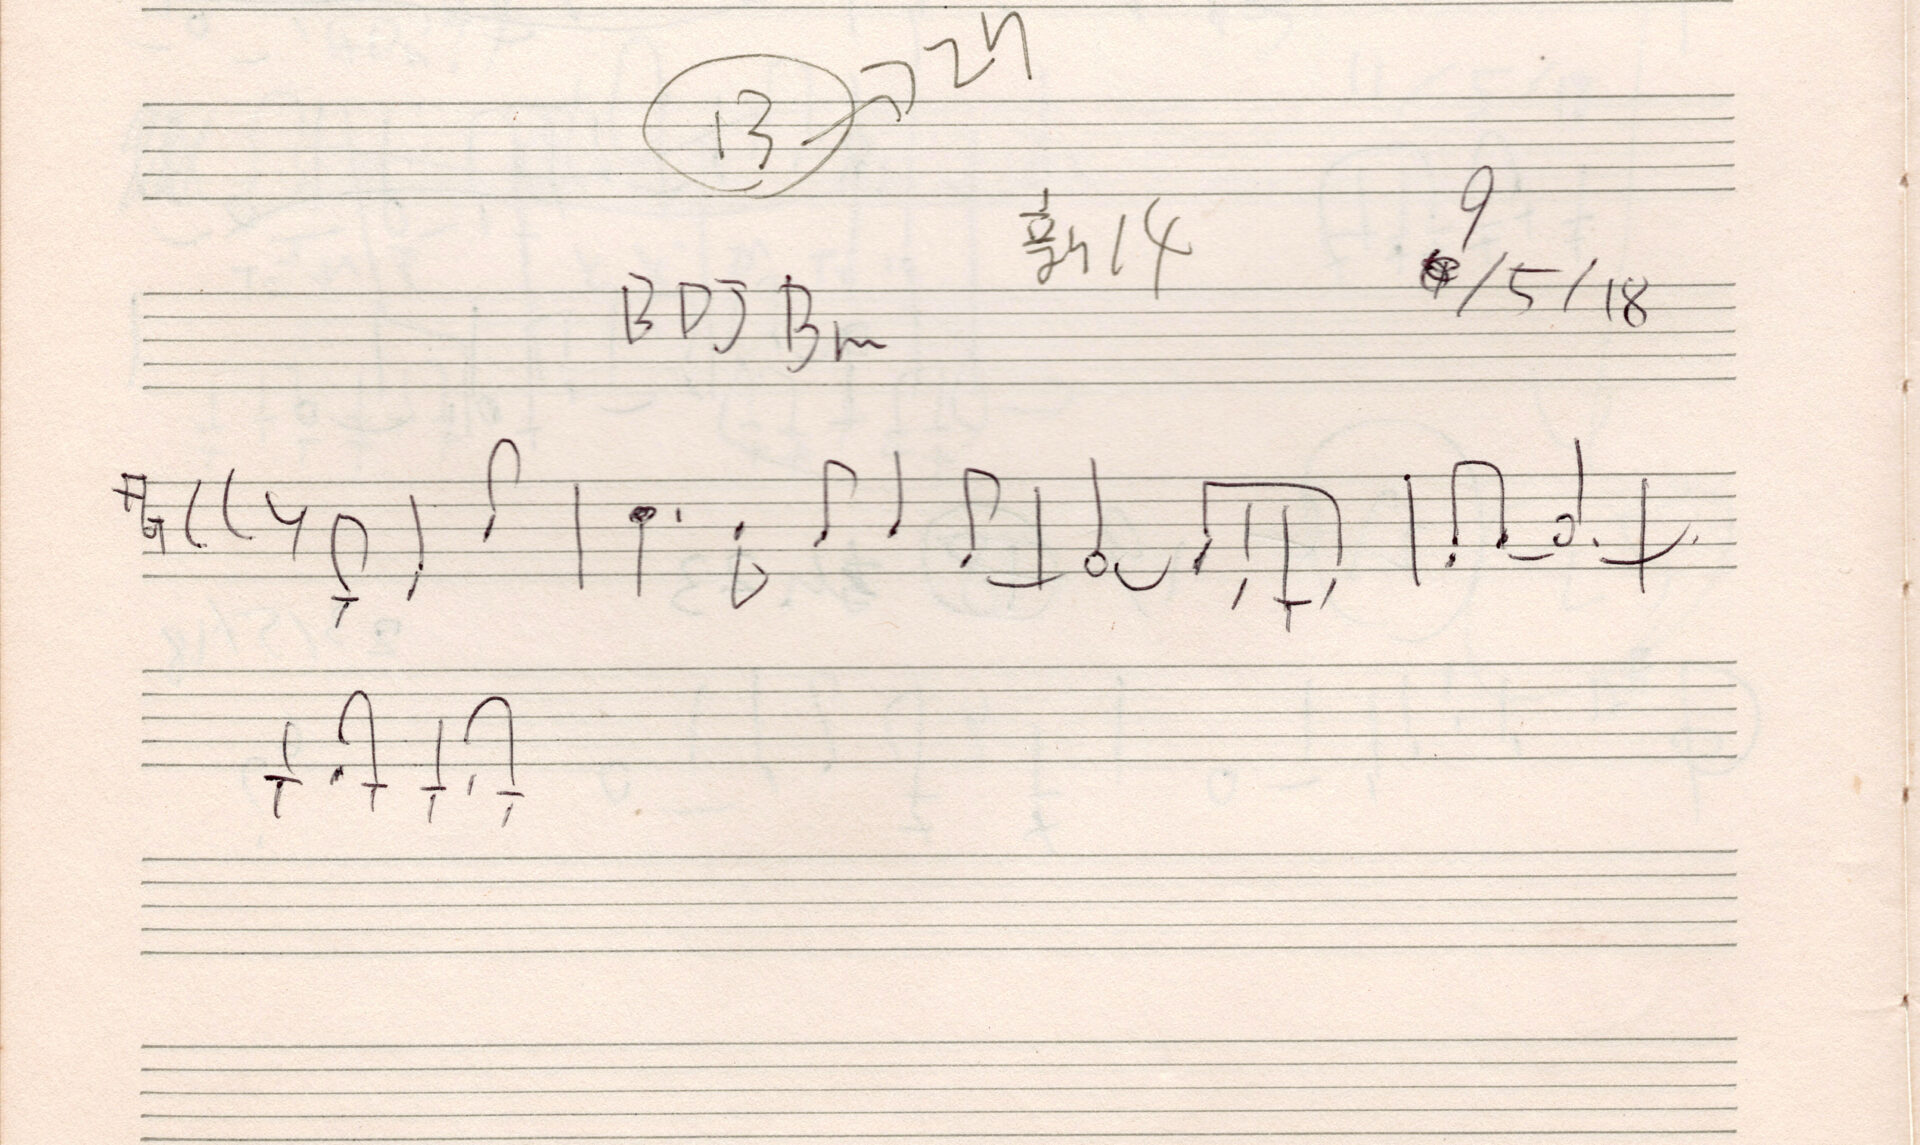 13 → 24
新14
9/5/18
BDJ Bm